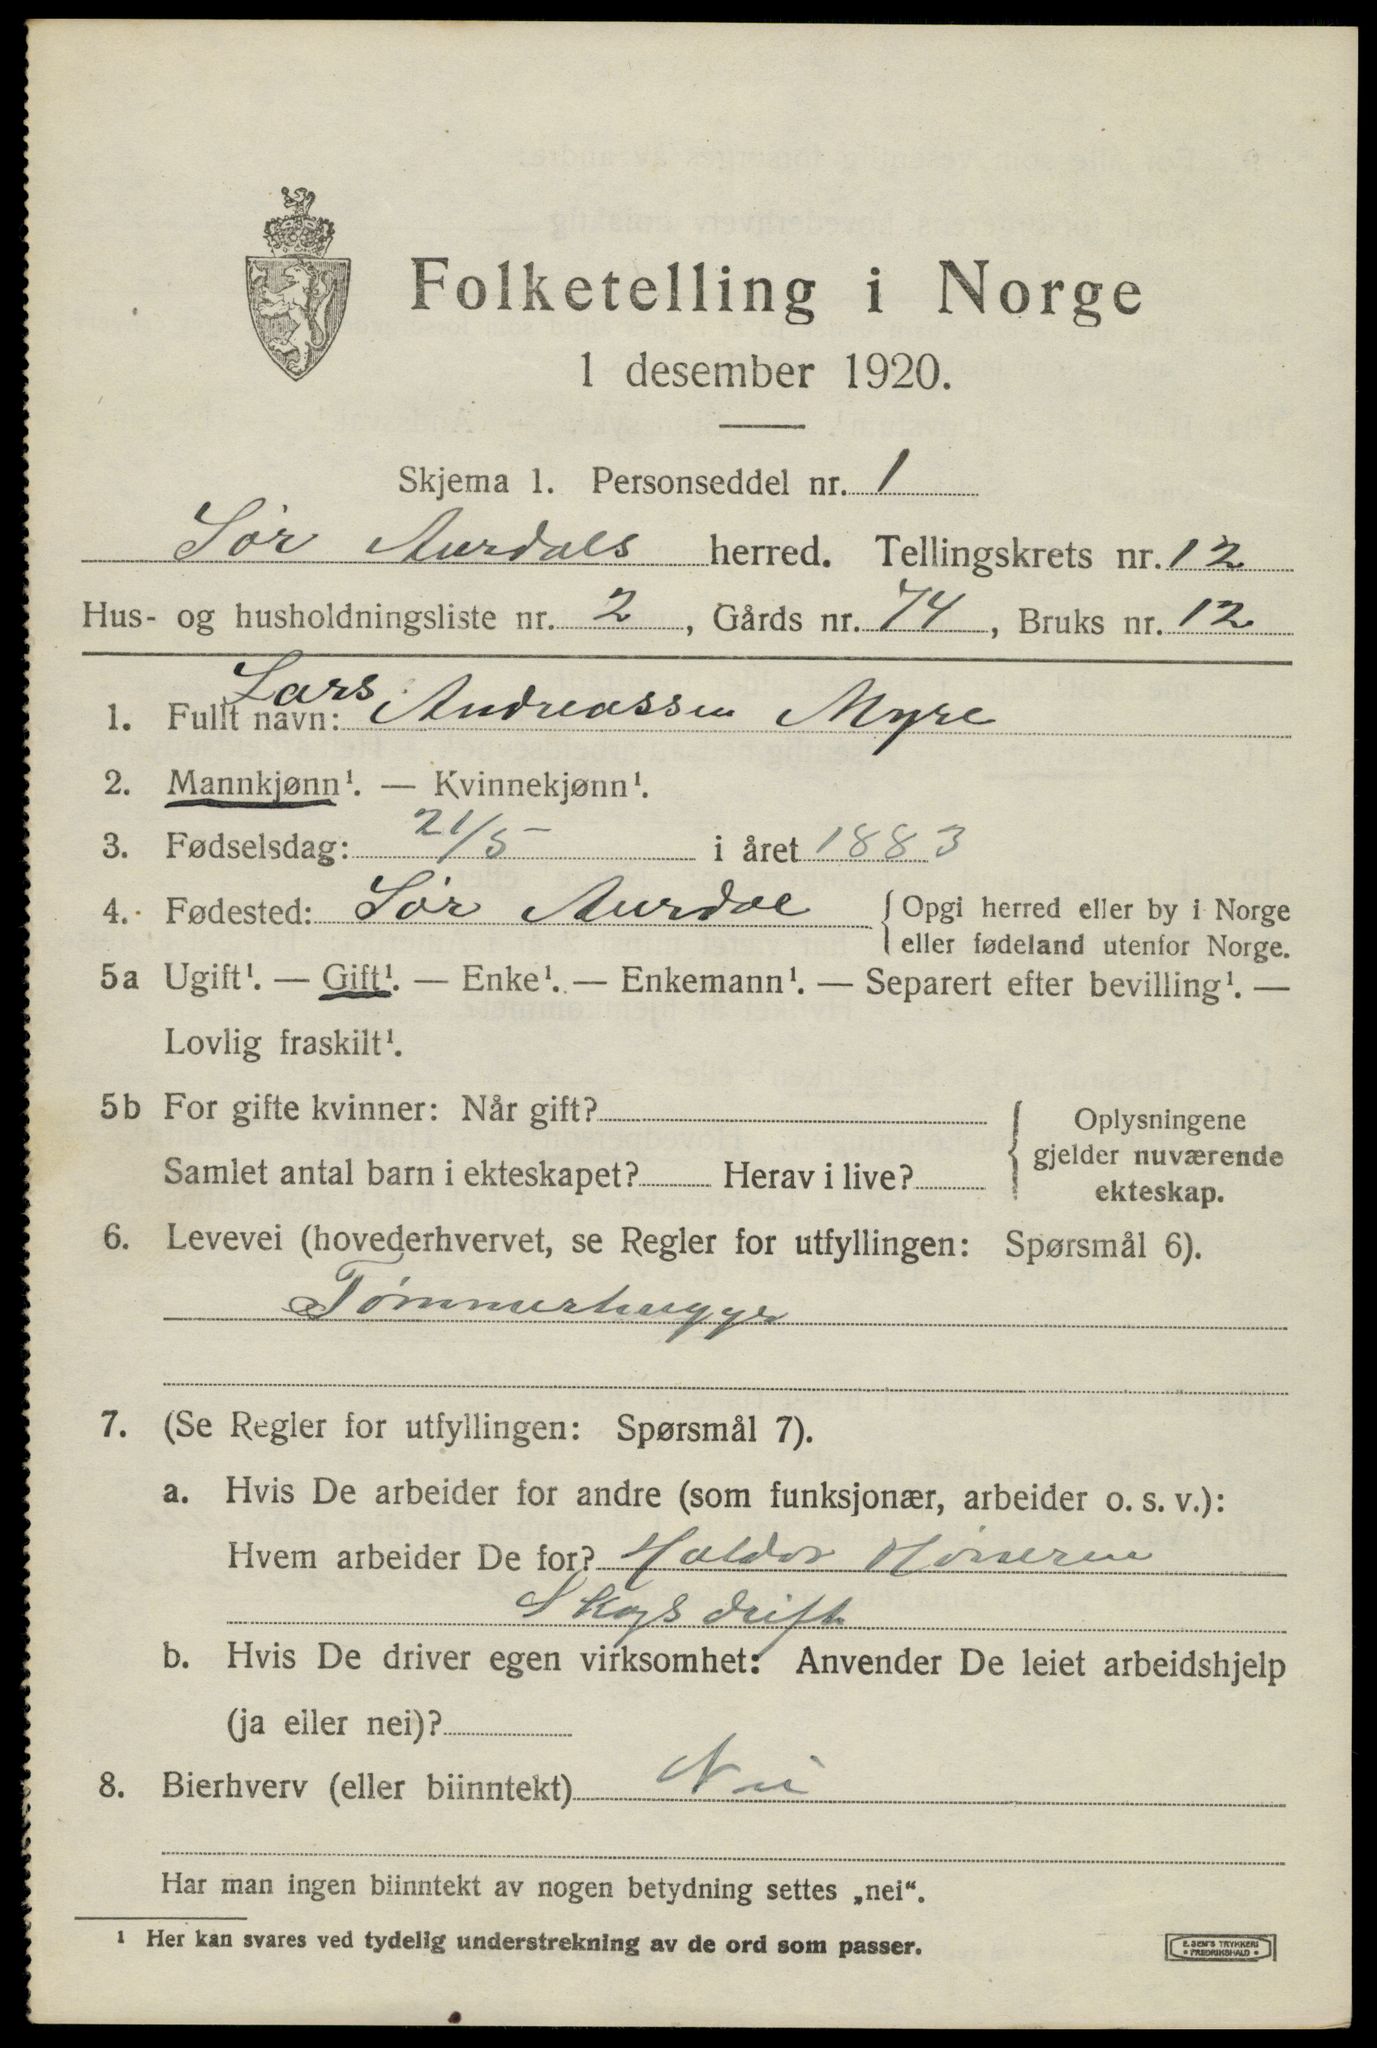 Folketelling i Norge
1 desember 1920.
Skjema 1. Personseddel nr. 1
Sør Aurdals herred. Tellingskrets nr. 12
Hus- og husholdningsliste nr. 2, Gårds nr. 74, Bruks nr. 12
Lars
1. Fullt navn: Andreassen Myre
2. Mannkjønn¹. — Kvinnekjønn¹.
3. Fødselsdag: 21/5 i året 1883
4. Fødested: Sør Aurdal
Opgi herred eller by i Norge
eller fødeland utenfor Norge.
5a Ugift¹. — Gift¹. — Enke¹. — Enkemann¹. — Separert efter bevilling¹. —
Lovlig fraskilt¹.
5b For gifte kvinner: Når gift?
Samlet antal barn i ekteskapet? Herav i live?
Oplysningene
gjelder nuværende
ekteskap.
6. Levevei (hovederhvervet, se Regler for utfyllingen: Spørsmål 6).
Tømmerhugger
7. (Se Regler for utfyllingen: Spørsmål 7).
a. Hvis De arbeider for andre (som funksjonær, arbeider o. s. v.):
Hvem arbeider De for? Haldor
Skogsdrift
b. Hvis De driver egen virksomhet: Anvender De leiet arbeidshjelp
(ja eller nei)?
8. Bierhverv (eller biinntekt) Nei
Har man ingen biinntekt av nogen betydning settes „nei“.
¹ Her kan svares ved tydelig understrekning av de ord som passer.
E. SEM'S TRYKKERI
• FREDRIKSHALD •